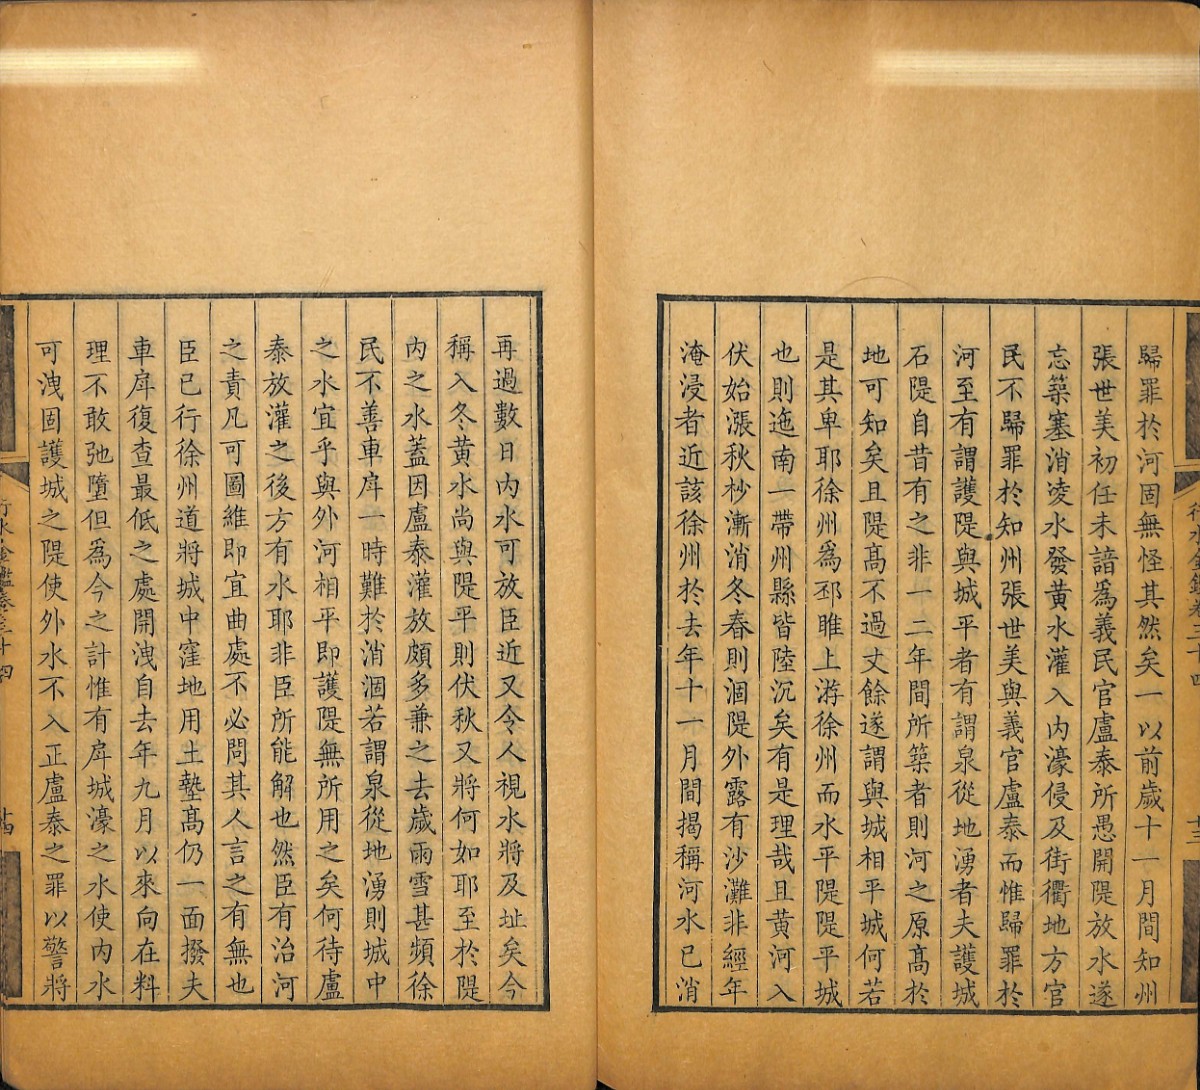 歸罪於河固無怪其然矣一以前歲十一月間知州
張世美初任未諳爲義民官盧泰所愚開隄放水遂
忘築塞消凌水發黃水灌入内濠侵及街衢地方官
民不歸罪於知州張世美與義官盧泰而惟歸罪於
河至有謂護隄與城平者有謂泉從地湧者夫護城
石隄自昔有之非一二年間所築者則河之原髙於
地可知矣且隄髙不過丈餘遂謂與城相平城何若
是其卑耶徐州爲邳睢上游徐州而水平隄隄平城
也則迤南一帶州縣皆陸沉矣有是理哉且黃河入
伏始漲秋杪漸消冬春則涸隄外露有沙灘非經年
淹浸者近該徐州於去年十一月間揭稱河水已消
再過數日内水可放臣近又令人視水將及址矣今
稱入冬黃水尚與隄平則伏秋又將何如耶至於隄
内之水蓋因盧泰灌放頗多兼之去歲雨雪甚頻徐
民不善車戽一時難於消涸若謂泉從地湧則城中
之水宜乎與外河相平即護隄無所用之矣何待盧
泰放灌之後方有水耶非臣所能解也然臣有治河
之責凡可圖維即宜曲處不必問其人言之有無也
臣已行徐州道將城中窪地用土墊髙仍一面撥夫
車戽復查最低之處開洩自去年九月以來向在料
理不敢弛墮但爲今之計惟有戽城濠之水使内水
可洩固護城之隄使外水不入正盧泰之罪以警將